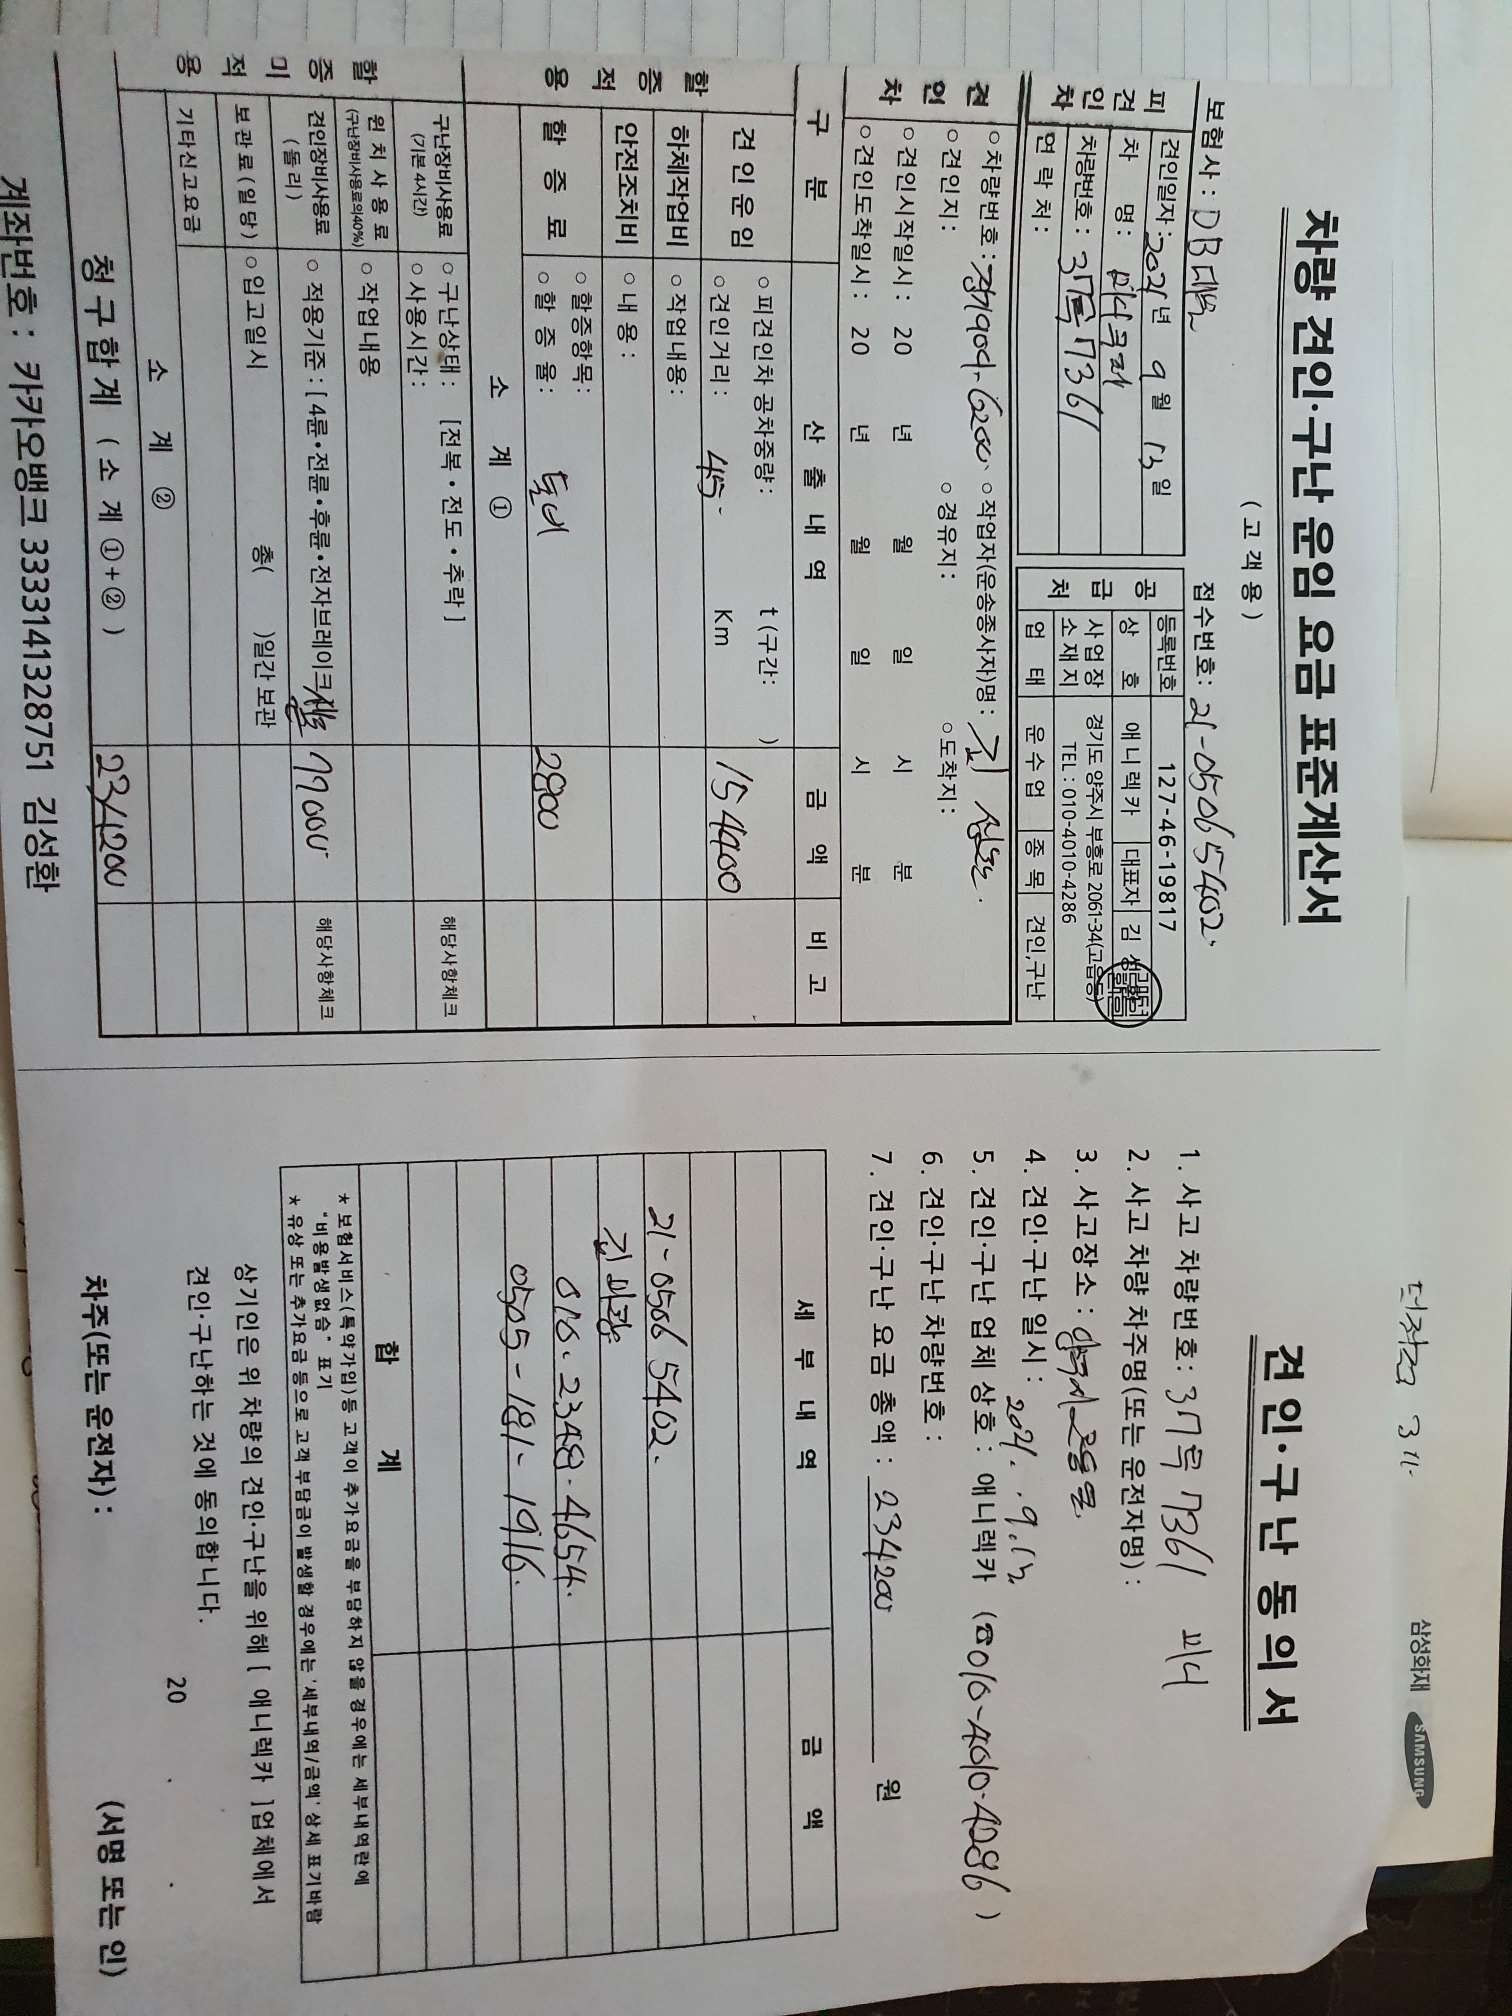 차량 견인·구난 운임 요금 표준계산서
( 고 객 용 )
보험사 : DB 접수번호 : 21-05065402
피견인차
견인일자 : 2021년 9월 13일
차 명 :
차량번호 : 7361
연 락 처 :
공급처
등록번호 127-46-19817
상 호 애니렉카 대표자 김성환
사업장 소재지 경기도 양주시 부흥로 2061-34(고읍동)
TEL : 010-4010-4286
업 태 운수업 종 목 견인,구난
견인차
○ 차량번호 : ○ 작업자(운송종사자)명 : 김성환
○ 견인지 : ○ 경유지 : ○ 도착지 :
○ 견인시작일시 : 20 년 월 일 시 분
○ 견인도착일시 : 20 년 월 일 시 분
구 분 산 출 내 역 금 액 비 고
할증적용
견 인 운 임 ○ 피견인차 공차중량 : t (구간: )
○ 견인거리 : 45 Km 154400
하체작업비 ○ 작업내용 :
안전조치비 ○ 내용 :
할 증 료 ○ 할증항목:
○ 할 증 율: 톨비 2800
소 계 ①
할증미적용
구난장비사용료 (기본 4시간) ○ 구난상태 : [전복 • 전도 • 추락 ] 해당사항체크
○ 사용시간 :
윈 치 사 용 료 (구난장비사용료의40%) ○ 작업내용
견인장비사용료 ( 돌 리 ) ○ 적용기준 : [ 4륜 • 전륜 • 후륜 • 전자브레이크 77000 해당사항체크
보 관 료 ( 일 당 ) ○ 입고일시 총( )일간 보관
기타신고요금
소 계 ②
청 구 합 계 ( 소 계 ① + ② ) 234200
계좌번호 : 카카오뱅크 3333141328751 김성환
3
삼성화재 SAMSUNG
견인·구난 동의서
1. 사고 차량번호 : 7361
2. 사고 차량 차주명(또는 운전자명) :
3. 사고장소 :
4. 견인·구난 일시 : 2021. 9. 13.
5. 견인·구난 업체 상호 : 애니렉카 ( 010-4010-4286 )
6. 견인·구난 차량번호 :
7. 견인·구난 요금 총액 : 234200 원
세 부 내 역 금 액
21-05065402.
010. 2348. 4654.
0505-181-1916.
합 계
* 보험서비스(특약가입)등 고객이 추가요금을 부담하지 않을 경우에는 세부내역란에
"비용발생없슴" 표기
* 유상 또는 추가요금 등으로 고객 부담금이 발생할 경우에는 '세부내역/금액' 상세 표기바람
상기인은 위 차량의 견인·구난을 위해 [ 애니렉카 ]업체에서
견인·구난하는 것에 동의합니다.
20 . .
차주(또는 운전자) : (서명 또는 인)